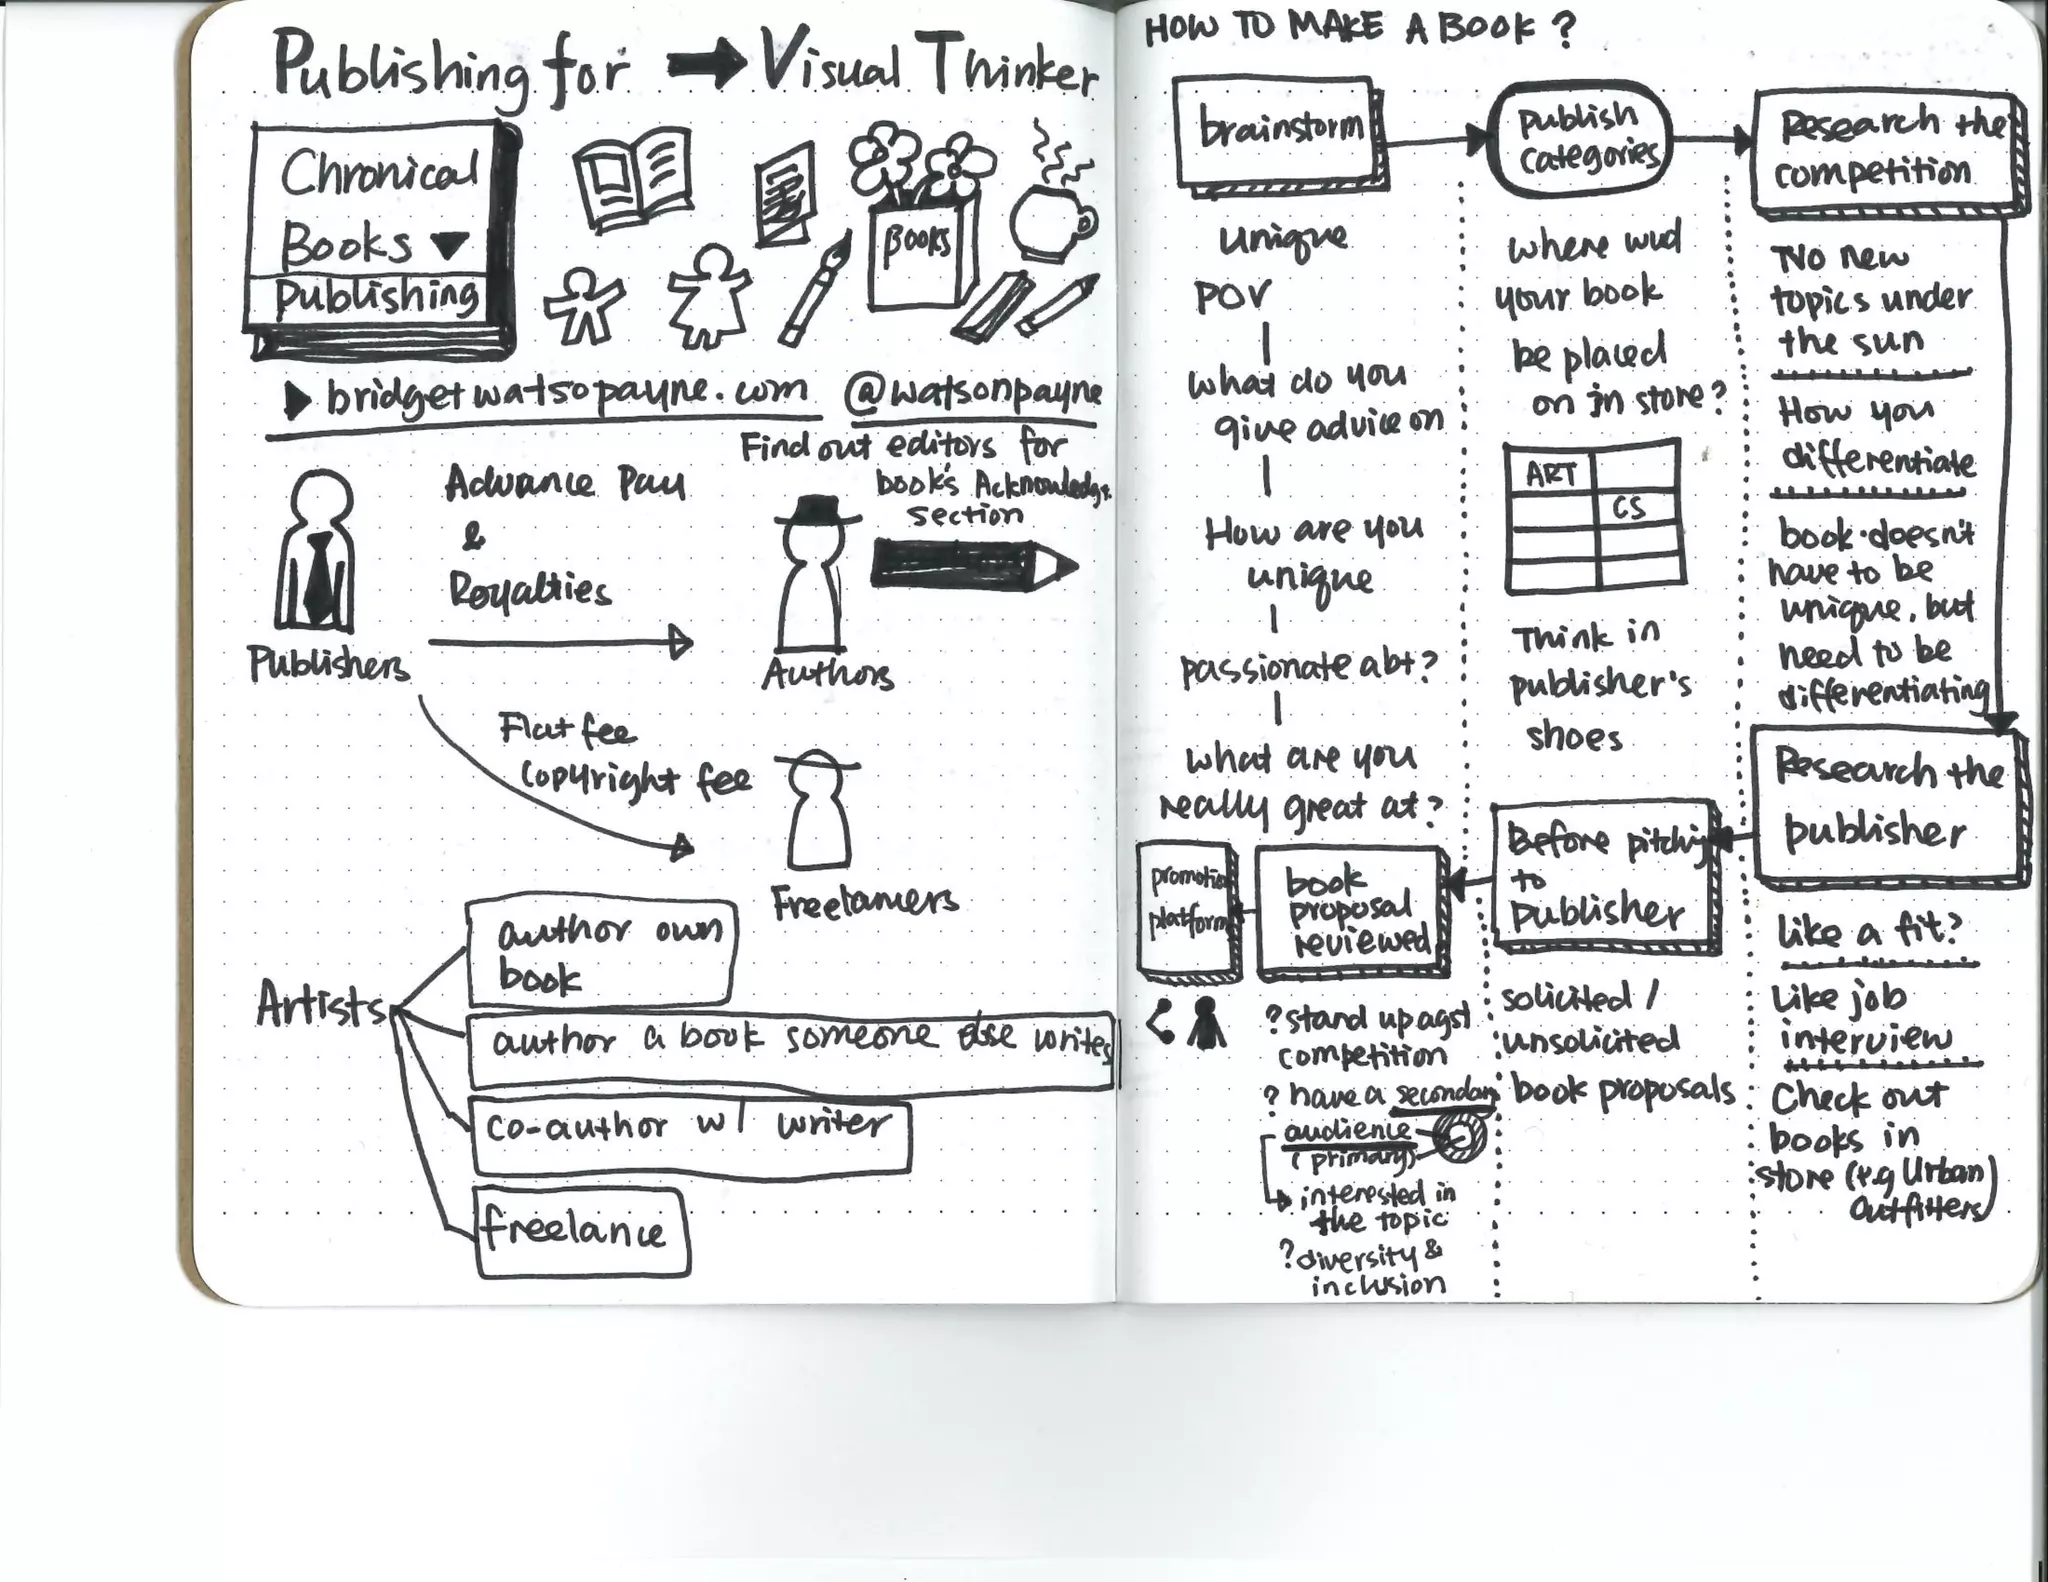 Publishing for Visual Thinker
Chronical
Books
Publishing
BOOKS
bridgetwatsopayne.com @watsonpayne
Find out editors for
book's Acknowledg.
section
Advance Pay
&
Royalties
Publishers
Authors
Flat fee
Copyright fee
Freelancers
Artists
author own
book
author a book someone else writes
co-author w/ writer
freelance
HOW TO MAKE A BOOK?
brainstorm
unique
POV
what do you
give advice on
How are you
unique
passionate abt?
what are you
really great at?
Publish
categories
where wud
your book
be placed
on in store?
ART
CS
Think in
publisher's
shoes
Research the
competition
No new
topics under
the sun
How you
differentiate
book doesn't
have to be
unique, but
need to be
differentiating
Research the
publisher
Like a fit?
Like job
interview
Check out
books in
store (e.g Urban
Outfitters)
Before pitching
to
publisher
solicited /
unsolicited
book proposals
book
proposal
reviewed
? stand up agst
competition
? have a secondary
audience
(primary)
interested in
the topic
? diversity &
inclusion
promotion
platform